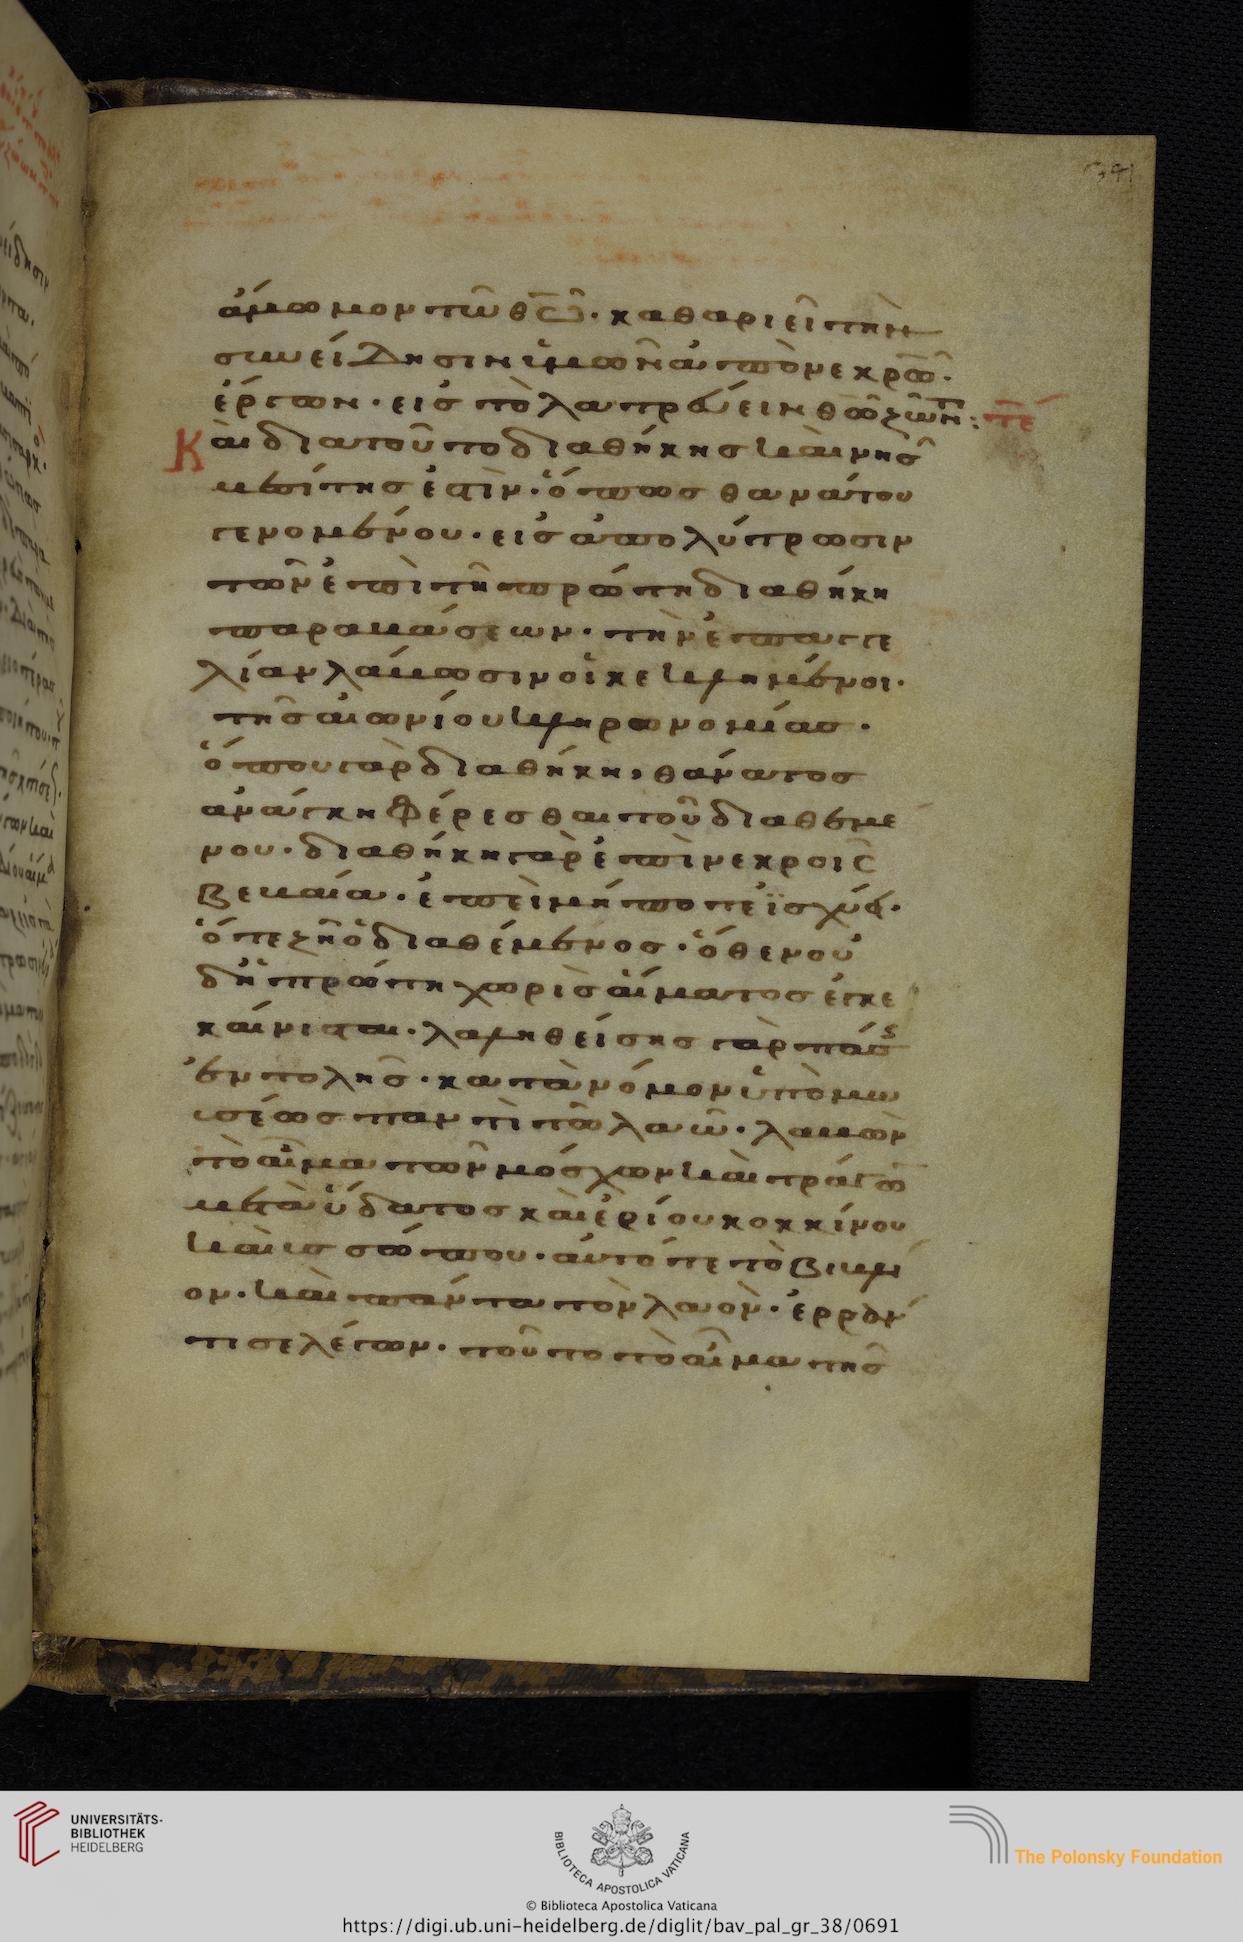 341
ἄμωμον τῶ θ̅ω̅· καθαριεῖ τὴν
συνείδησιν ἡμῶν ἀπὸ νεκρῶ̅·
ἔργων· εἰς τὸ λατρεύειν θ̅ω̅ ζῶντι: τε
Καὶ διατοῦτο διαθήκης καὶνῆς
μεσίτης ἐστὶν· ὅπως θανάτου
γενομένου· εἰς ἀπολύτρωσιν
τῶν ἐπὶ τῆ πρώτη διαθήκη
παραβάσεων· τὴν ἐπαγγε
λίαν λάβωσιν οἱ κεκλημένοι·
τῆς αἰωνίου κληρωνομίας·
ὅπου γὰρ διαθήκη, θάνατος
ἀνάγκη φέρεσθαι τοῦ διαθεμέ
νου· διαθήκη γὰρ ἐπὶ νεκροῖς
βεβαία· ἐπεὶ μήποτε ἰσχύει·
ὅτε ζῆ ὁ διαθέμενος· ὅθεν οὐ
δ' ἡ πρώτη χωρὶς αἵματος ἐγκε
καίνισται· λαληθείσης γὰρ πάσ
ἐντολῆς· κατὰ νόμον ὑπὸ μω
υσέως παντὶ τῶ λαῶ· λαβὼν
τὸ αἷμα τῶν μόσχων καὶ τράγω̅
μετὰ ὕδατος καὶ ἐρίου κοκκίνου
καὶ ὑσσώπου· αὐτό τε τὸ βιβλί
ον· καὶ πάντα τὸν λαὸν· ἐρράν
τισε λέγων· τοῦτο τὸ αἷμα τῆς
UNIVERSITÄTS-
BIBLIOTHEK
HEIDELBERG
BIBLIOTECA APOSTOLICA VATICANA
The Polonsky Foundation
© Biblioteca Apostolica Vaticana
https://digi.ub.uni-heidelberg.de/diglit/bav_pal_gr_38/0691